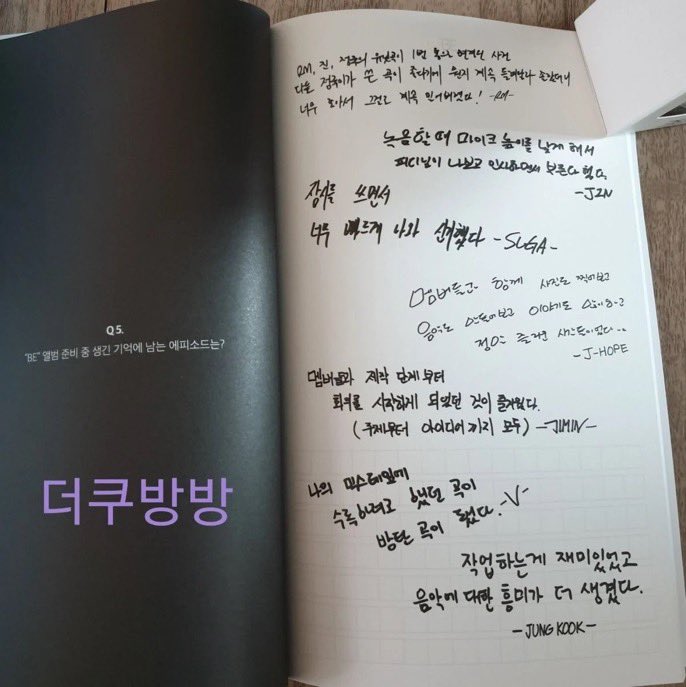 Q5.
"BE" 앨범 준비 중 생긴 기억에 남는 에피소드는?
더쿠방방
RM, 진, 정국의 유닛곡이 1번 톡으로 연결된 사건
다들 정국이가 쓴 곡이 좋다기에 원지 계속 들어보다
너무 좋아서 그걸로 계속 밀어버렸다! -RM-
녹음할 때 마이크 높이를 낮게 해서
피디님이 나보고 인사하면서 부른다 했다.
-JIN
잠시를 쓰면서
너무 빠르게 나와 신기했다 -SUGA-
멤버들과 함께 사진도 찍어보고
음악도 만들어보고 이야기도
정말 즐거운 시간이었다...
-J-HOPE
멤버들과 제작 단계부터
회의를 시작하게 되었던 것이 즐거웠다.
(주제부터 아이디어까지 모두) -JIMIN-
나의 믹스테잎에
수록하려고 했던 곡이
방탄 곡이 됐었다. -V-
작업하는게 재미있었고
음악에 대한 흥미가 더 생겼다.
-JUNG KOOK-